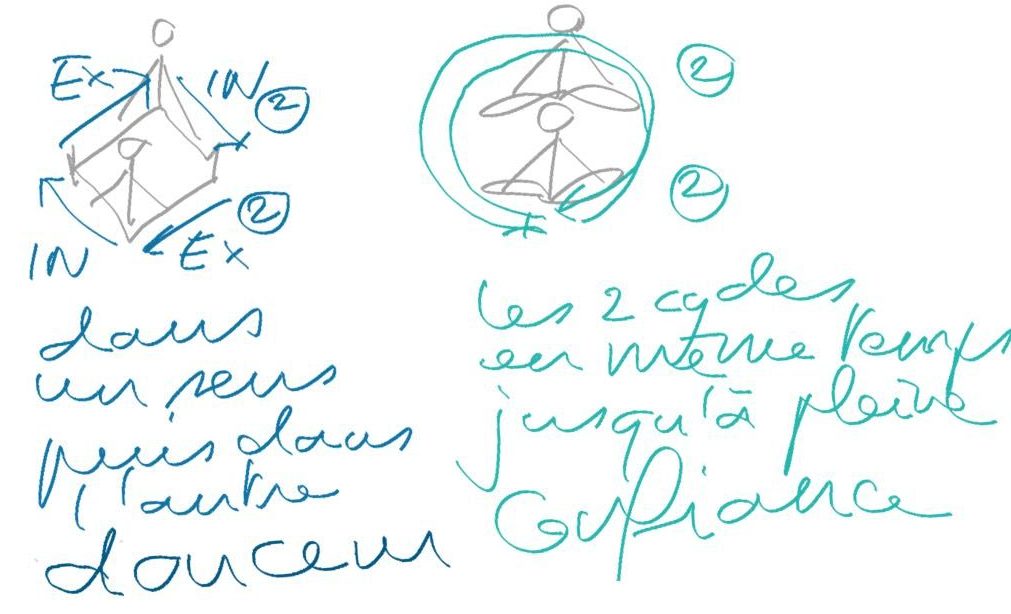 Ex IN 2
2
IN Ex
dans
un sens
puis dans
l'autre
douceur
2
2
les 2 cycles
en même temps
jusqu'à pleine
Confiance